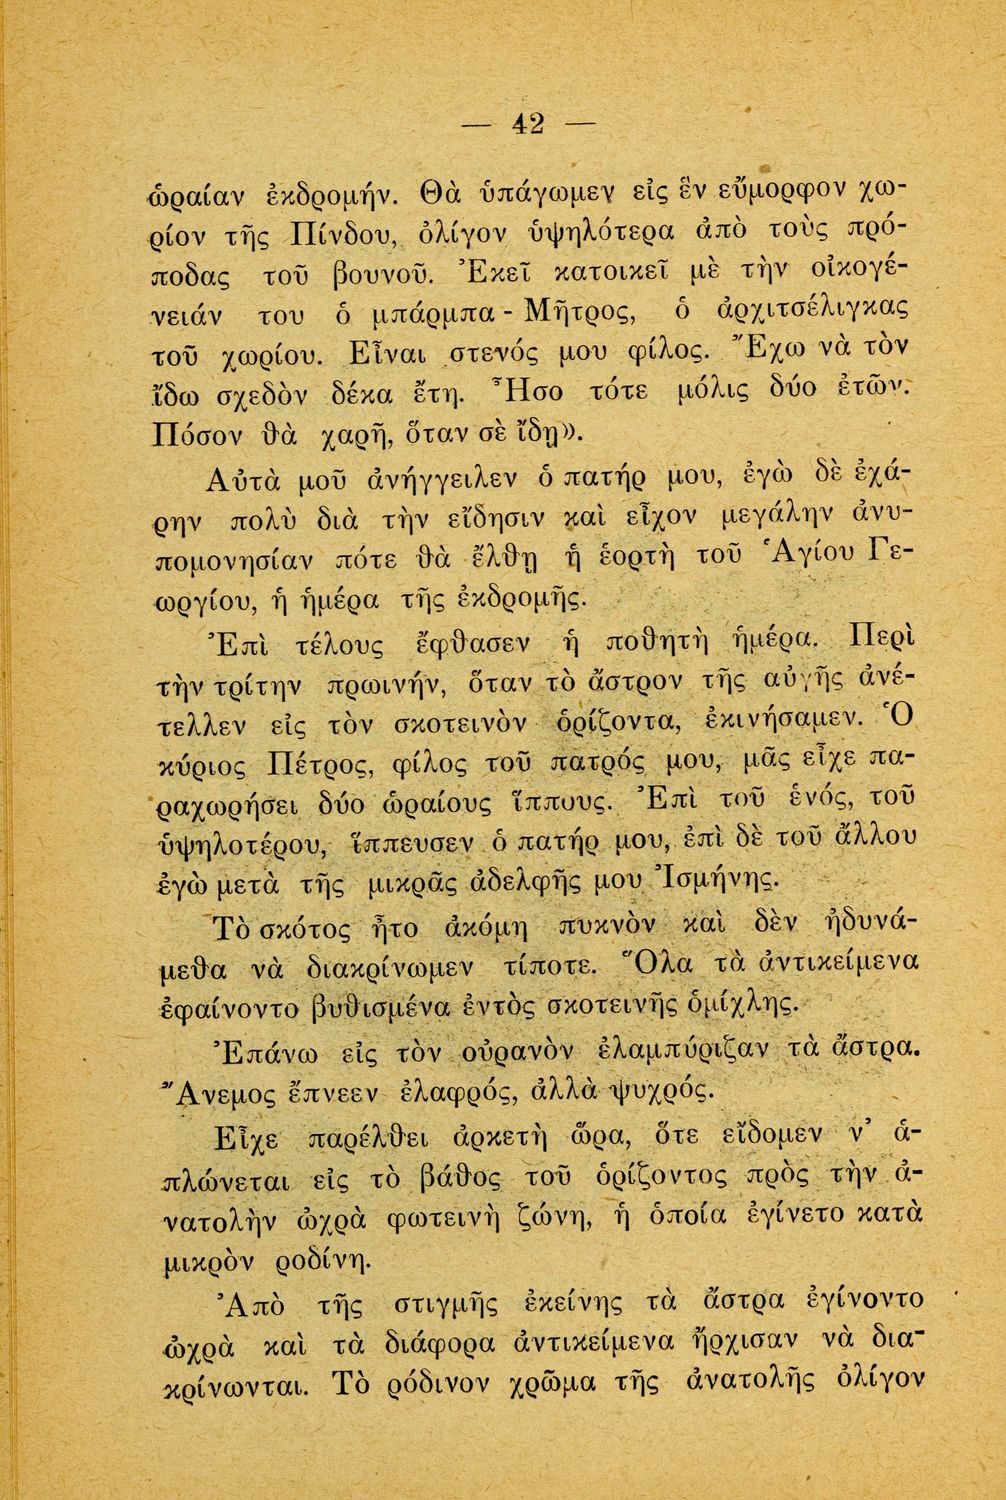 — 42 —
ὡραίαν ἐκδρομήν. Θὰ ὑπάγωμεν εἰς ἓν εὔμορφον χω-
ρίον τῆς Πίνδου, ὀλίγον ὑψηλότερα ἀπὸ τοὺς πρό-
ποδας τοῦ βουνοῦ. Ἐκεῖ κατοικεῖ μὲ τὴν οἰκογέ-
νειάν του ὁ μπάρμπα - Μῆτρος, ὁ ἀρχιτσέλιγκας
τοῦ χωρίου. Εἶναι στενός μου φίλος. Ἔχω νὰ τὸν
ἴδω σχεδὸν δέκα ἔτη. Ἦσο τότε μόλις δύο ἐτῶν.
Πόσον θὰ χαρῇ, ὅταν σὲ ἴδῃ».
Αὐτὰ μοῦ ἀνήγγειλεν ὁ πατήρ μου, ἐγὼ δὲ ἐχά-
ρην πολὺ διὰ τὴν εἴδησιν καὶ εἶχον μεγάλην ἀνυ-
πομονησίαν πότε θὰ ἔλθῃ ἡ ἑορτὴ τοῦ Ἁγίου Γε-
ωργίου, ἡ ἡμέρα τῆς ἐκδρομῆς.
Ἐπὶ τέλους ἔφθασεν ἡ ποθητὴ ἡμέρα. Περὶ
τὴν τρίτην πρωινήν, ὅταν τὸ ἄστρον τῆς αὐγῆς ἀνέ-
τελλεν εἰς τὸν σκοτεινὸν ὁρίζοντα, ἐκινήσαμεν. Ὁ
κύριος Πέτρος, φίλος τοῦ πατρός μου, μᾶς εἶχε πα-
ραχωρήσει δύο ὡραίους ἵππους. Ἐπὶ τοῦ ἑνός, τοῦ
ὑψηλοτέρου, ἵππευσεν ὁ πατήρ μου, ἐπὶ δὲ τοῦ ἄλλου
ἐγὼ μετὰ τῆς μικρᾶς ἀδελφῆς μου Ἰσμήνης.
Τὸ σκότος ἦτο ἀκόμη πυκνὸν καὶ δὲν ἠδυνά-
μεθα νὰ διακρίνωμεν τίποτε. Ὅλα τὰ ἀντικείμενα
ἐφαίνοντο βυθισμένα ἐντὸς σκοτεινῆς ὁμίχλης.
Ἐπάνω εἰς τὸν οὐρανὸν ἐλαμπύριζαν τὰ ἄστρα.
Ἄνεμος ἔπνεεν ἐλαφρός, ἀλλὰ ψυχρός.
Εἶχε παρέλθει ἀρκετὴ ὥρα, ὅτε εἴδομεν ν' ἁ-
πλώνεται εἰς τὸ βάθος τοῦ ὁρίζοντος πρὸς τὴν ἀ-
νατολὴν ὠχρὰ φωτεινὴ ζώνη, ἡ ὁποία ἐγίνετο κατὰ
μικρὸν ροδίνη.
Ἀπὸ τῆς στιγμῆς ἐκείνης τὰ ἄστρα ἐγίνοντο
ὠχρὰ καὶ τὰ διάφορα ἀντικείμενα ἤρχισαν νὰ δια-
κρίνωνται. Τὸ ρόδινον χρῶμα τῆς ἀνατολῆς ὀλίγον